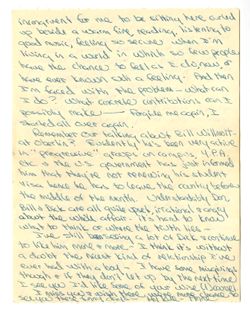 incongruent for me to be sitting here curled
up beside a warm fire reading, listening to
good music, feeling so secure when I'm
living in a world in which so few people
have the chance to feel as I do now, or
have ever known such a feeling. And then
I'm faced with the problem - what can
I do? What concrete contributions can I
possibly make - Forgive me again, I
started all over again.
Remember our talking about Bill Willmott -
at Oberlin? Evidently he's been very active
in "progressive" groups on campus, Y.P.A.,
etc. & the U.S. government has just informed
him that they're not renewing his student
visa hence he has to leave the country before
the middle of the month. Understandably Don,
Bill & Dick are all quite upset, irrational & angry
about the whole affair. It's hard to know
what to think or where the truth lies -
I've still been seeing a lot of Dick & continue
to like him more & more - I think it's without
a doubt the nicest kind of relationship I've
ever had with a boy - I have some misgivings
though & if they don't let up by the next time
I see you I'd like some of your wise
I miss you & wish there were more chance to
see you